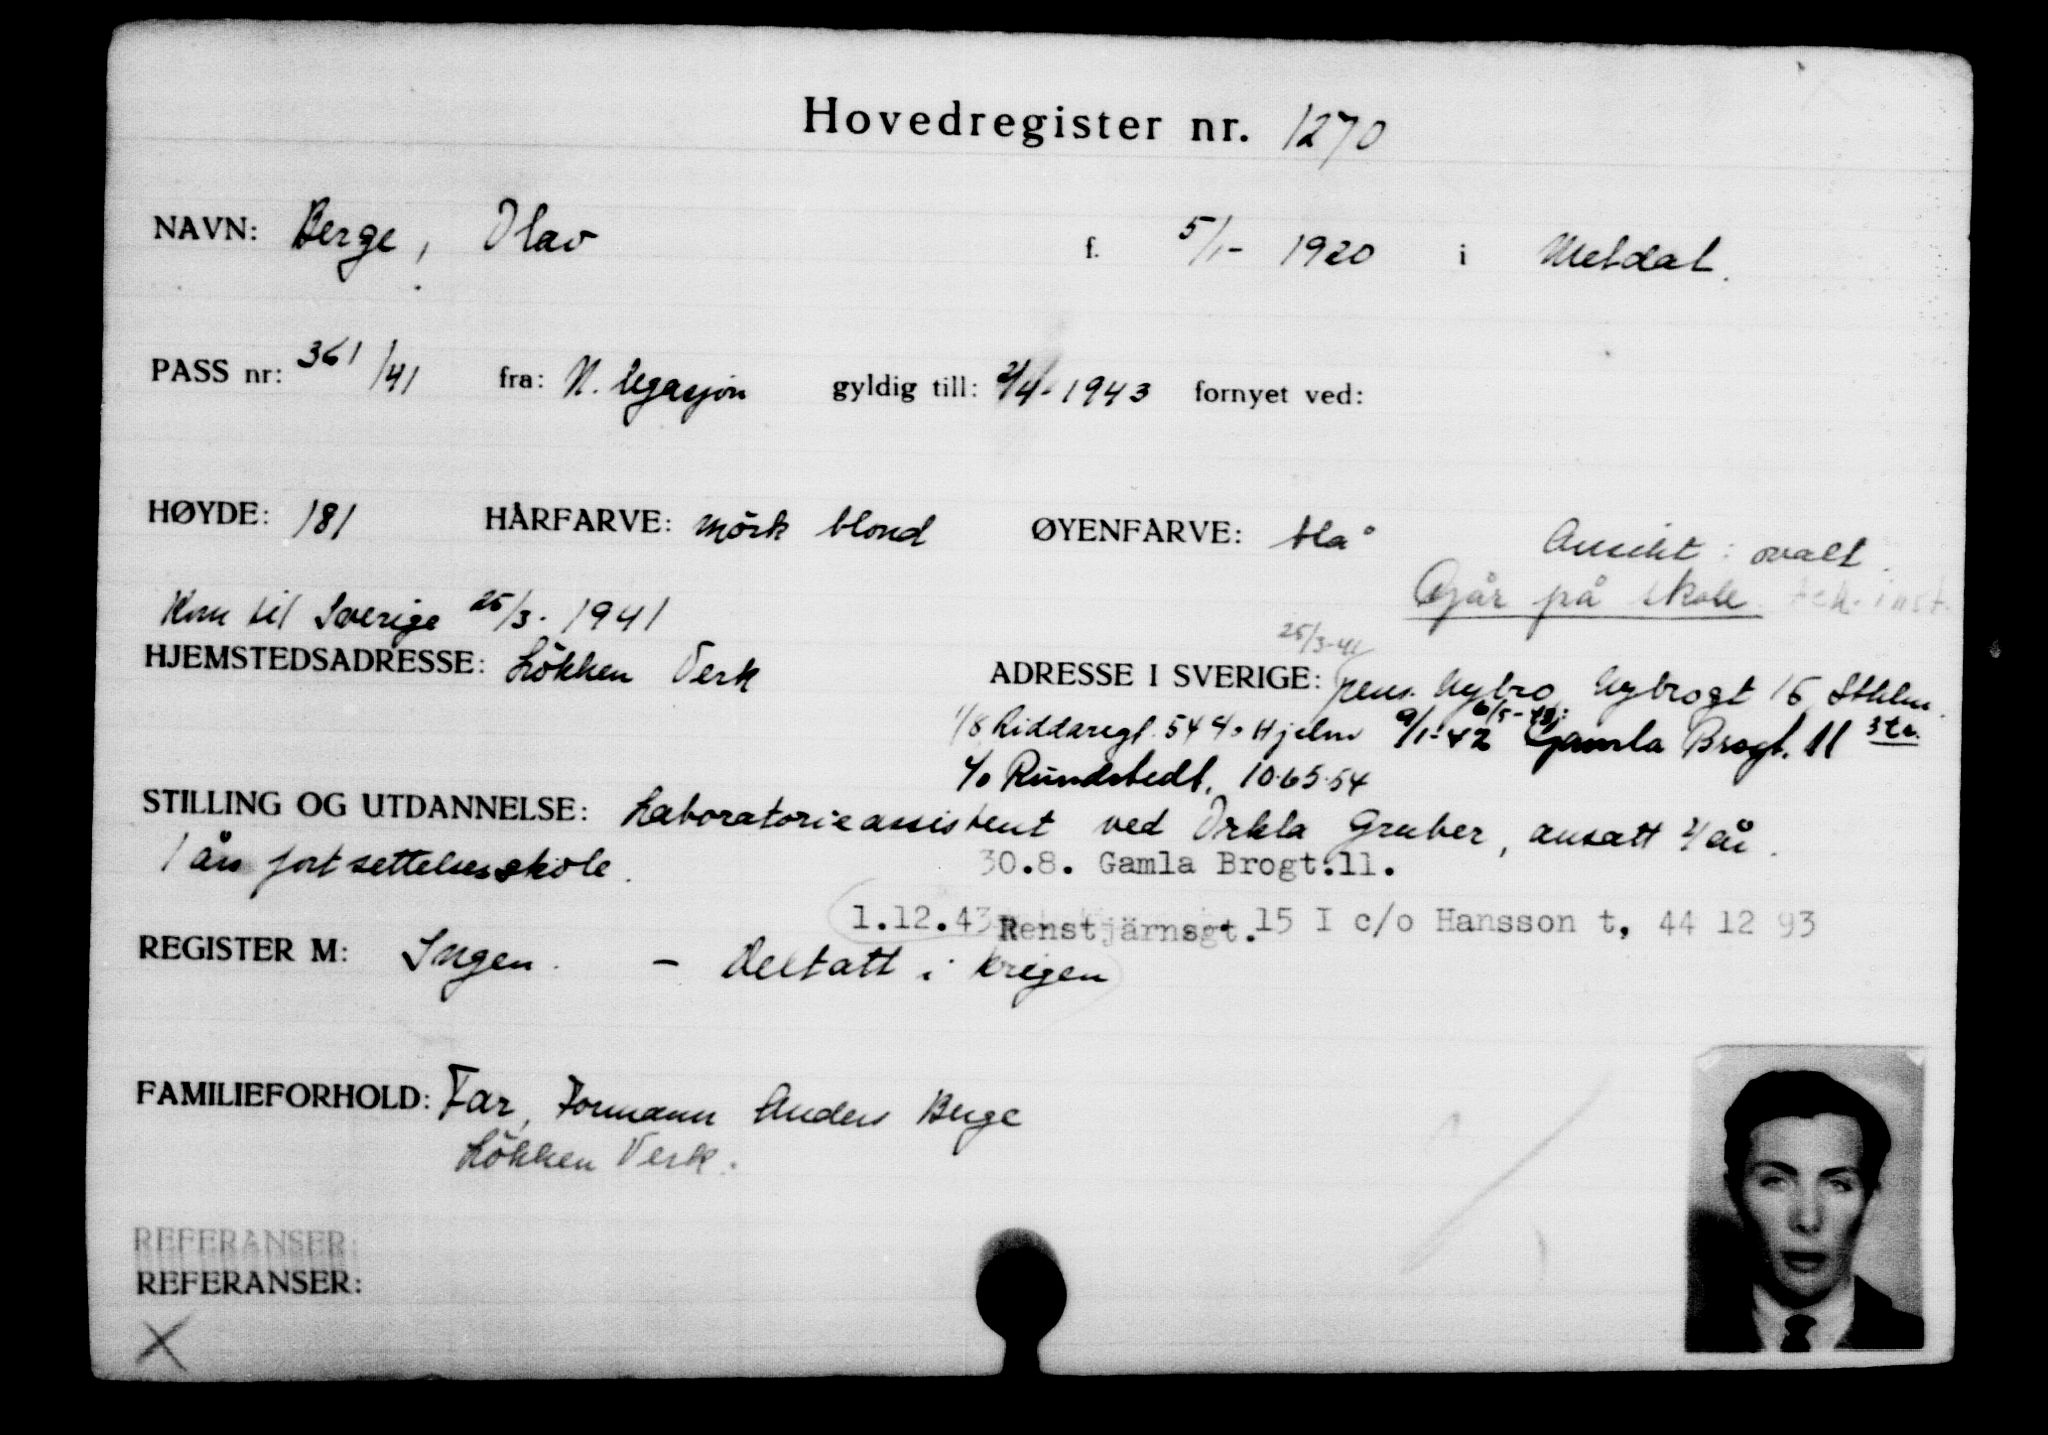 Hovedregister nr. 1270
NAVN: Berge, Olav f. 5/1- 1920 i Meldal.
PASS nr: 361/41 fra: N. legasjon gyldig till: 2/4- 1943 fornyet ved:
HØYDE: 181 HÅRFARVE: mörk blond ØYENFARVE: blå Ansikt: ovalt.
Går på skole tek. inst.
Kom til Sverige 25/3- 1941
25/3-41
HJEMSTEDSADRESSE: Lökken Verk ADRESSE I SVERIGE: pens. Nybro, Nybrogt 16 Sthlm.
1/8 Riddaregt. 54 c/o Hjelm 9/1-42 6/5-43: Gamla Brogt. 11 3 tr.
c/o Rundstedt. 10.65.54
STILLING OG UTDANNELSE: Laboratorieassistent ved Orkla Gruber, ansatt 4 år.
1 års fortsettelsesskole.
30.8. Gamla Brogt.11.
1.12.43 Renstjärnsgt. 15 I c/o Hansson t, 44 12 93
REGISTER M: Ingen. - Deltatt i krigen
FAMILIEFORHOLD: Far, Formann Anders Berge
Lökken Verk.
REFERANSER:
REFERANSER: